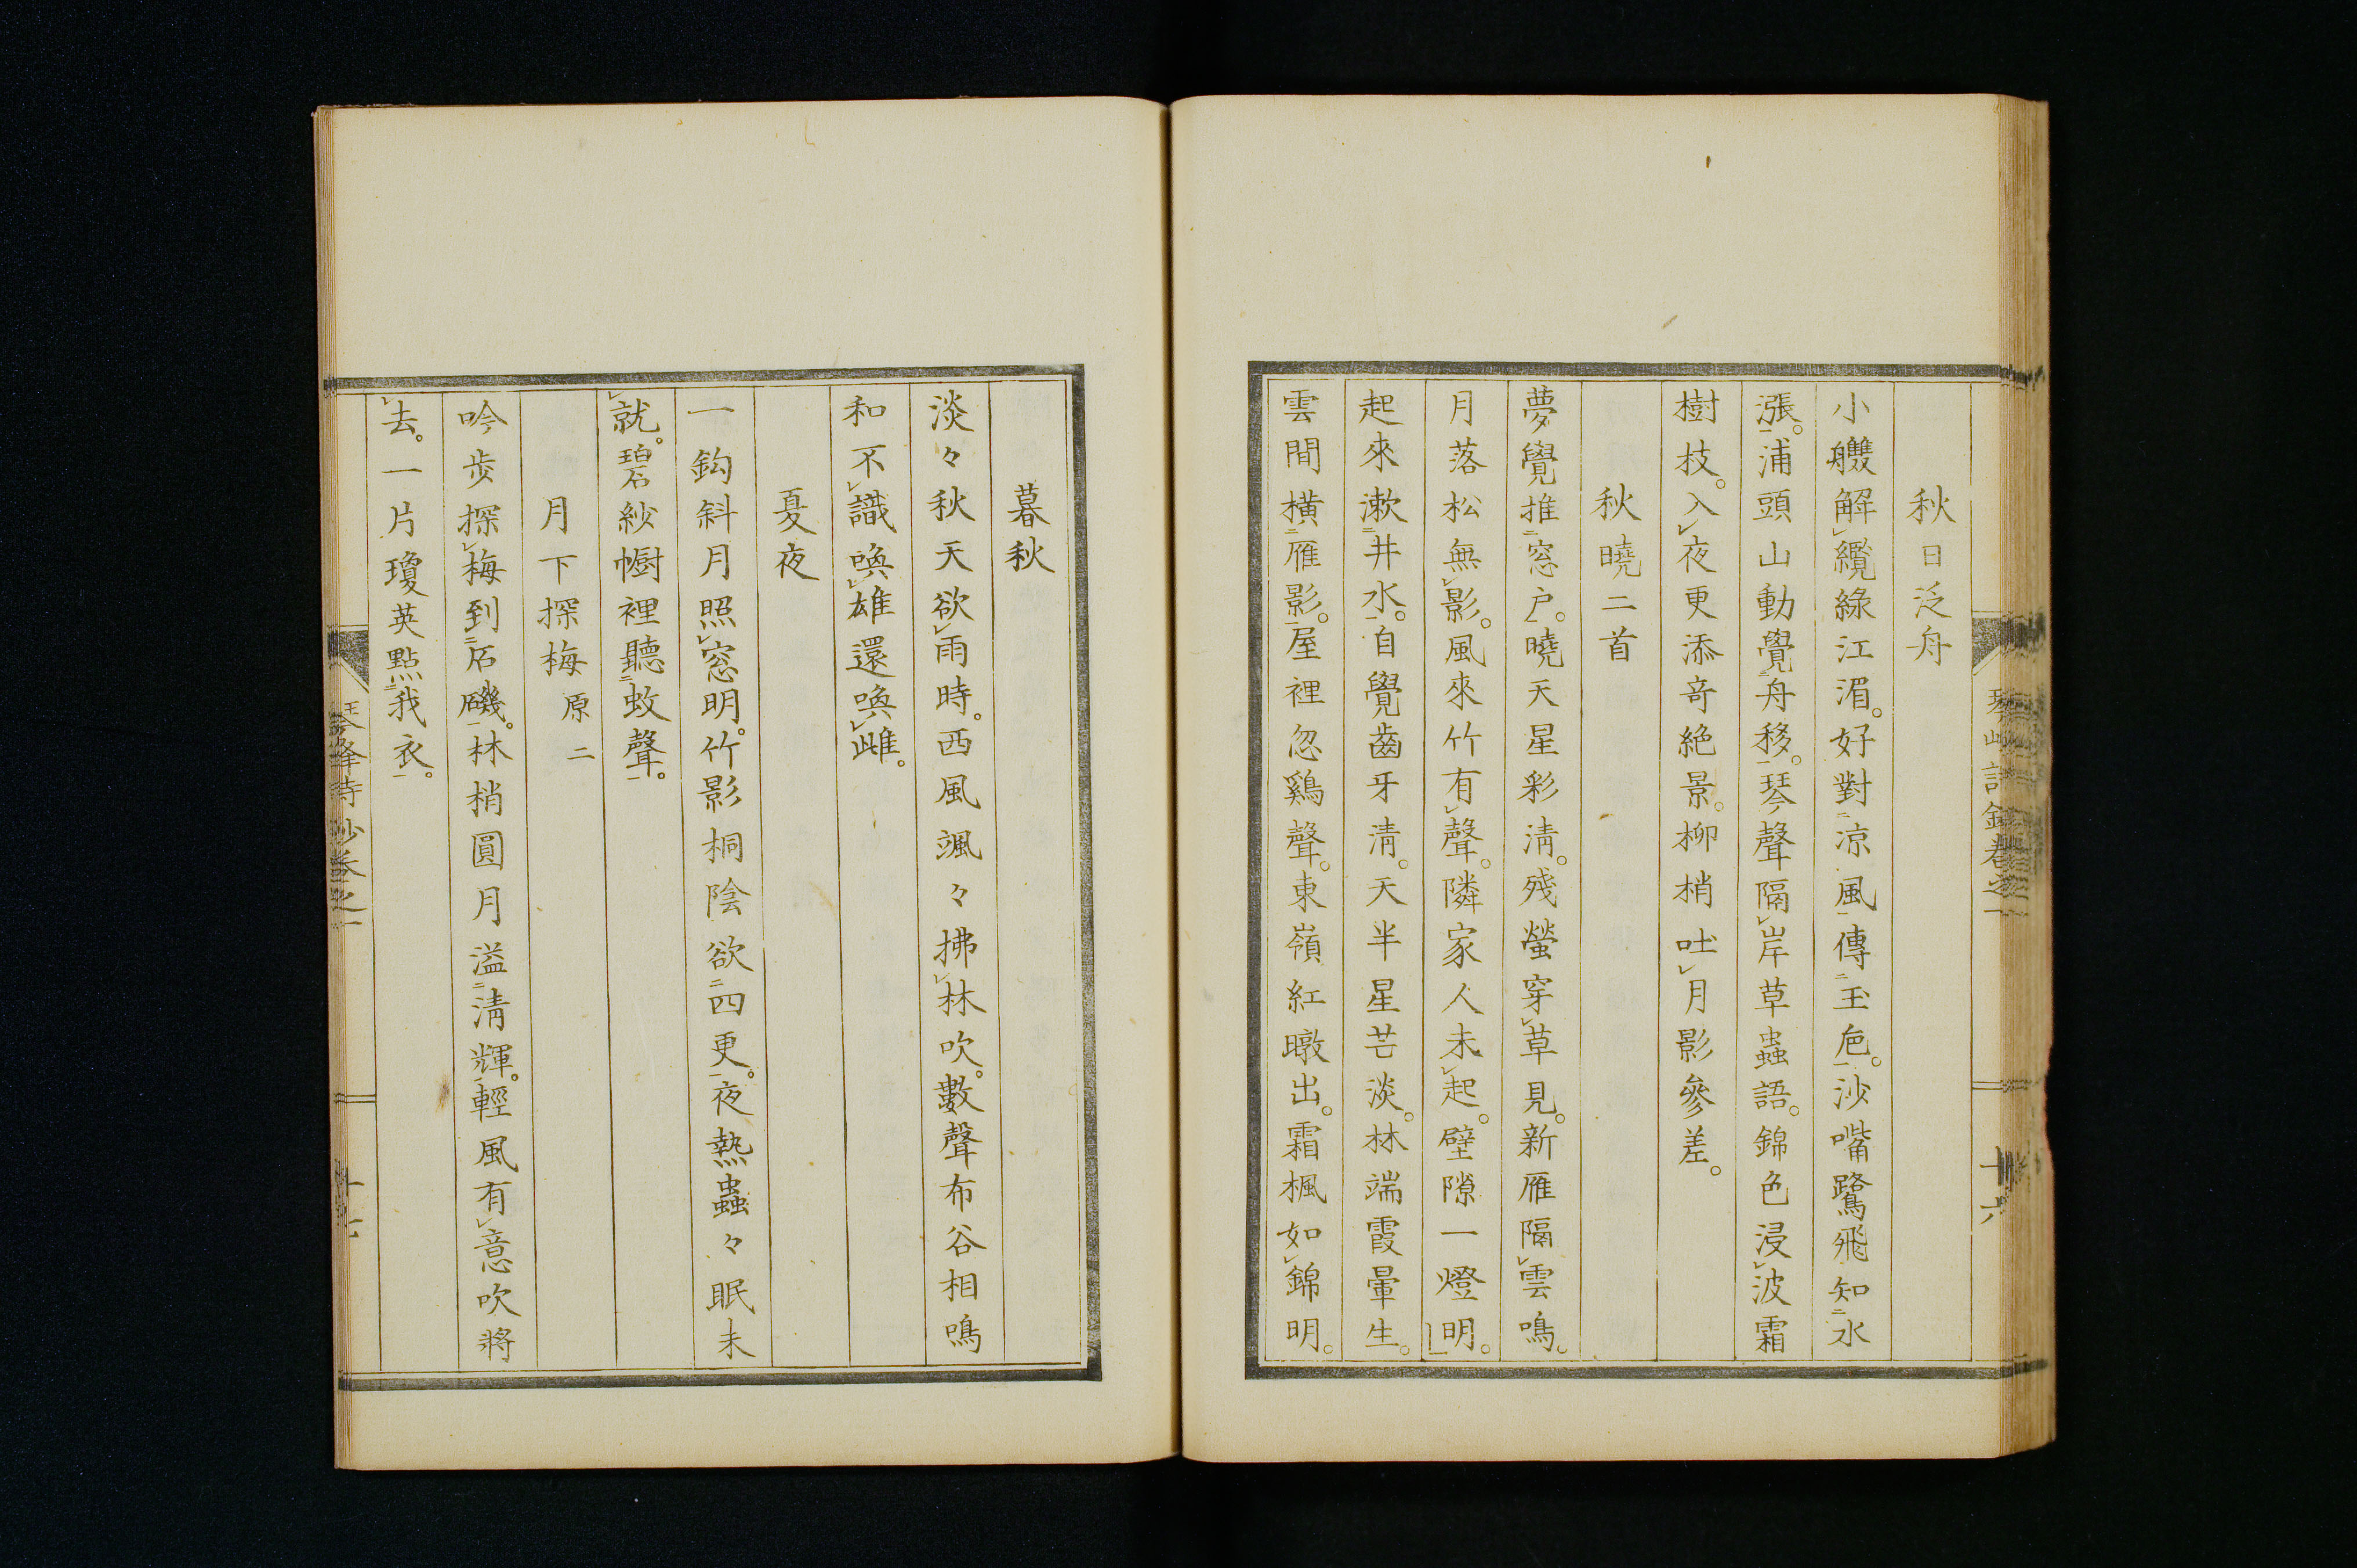 秋日泛舟
小艭解㆑纜綠江湄。好對㆓凉風㆒傳㆓玉卮㆒。沙嘴鷺飛知㆓水
漲㆒。浦頭山動覺㆓舟移㆒。琴聲隔㆑岸草蟲語。錦色浸㆑波霜
樹枝。入㆑夜更添奇絕景。柳梢吐㆑月影參差。
秋曉二首
夢覺推㆓窓戶㆒。曉天星彩淸。殘螢穿㆑草見。新雁隔㆑雲鳴。
月落松無㆑影。風來竹有㆑聲。隣家人未㆑起。壁隙一燈明。」
起來漱㆓井水㆒。自覺齒牙淸。天半星芒淡。林端霞暈生。
雲間橫㆓雁影㆒。屋裡忽鷄聲。東嶺紅暾出。霜楓如㆑錦明。
暮秋
淡々秋天欲㆑雨時。西風颯々拂㆑林吹。數聲布谷相鳴
和不㆑識喚㆑雄還喚㆑雌。
夏夜
一鈎斜月照㆑窓明。竹影桐陰欲㆓四更㆒。夜熱蟲々眠未
㆑就。碧紗幮裡聽㆓蚊聲㆒。
月下探梅 原二
吟步探㆑梅到㆓石磯㆒。林梢圓月溢㆓淸輝㆒。輕風有㆑意吹將
㆑去。一片瓊英點㆓我衣㆒。
琴峰詩鈔卷之一